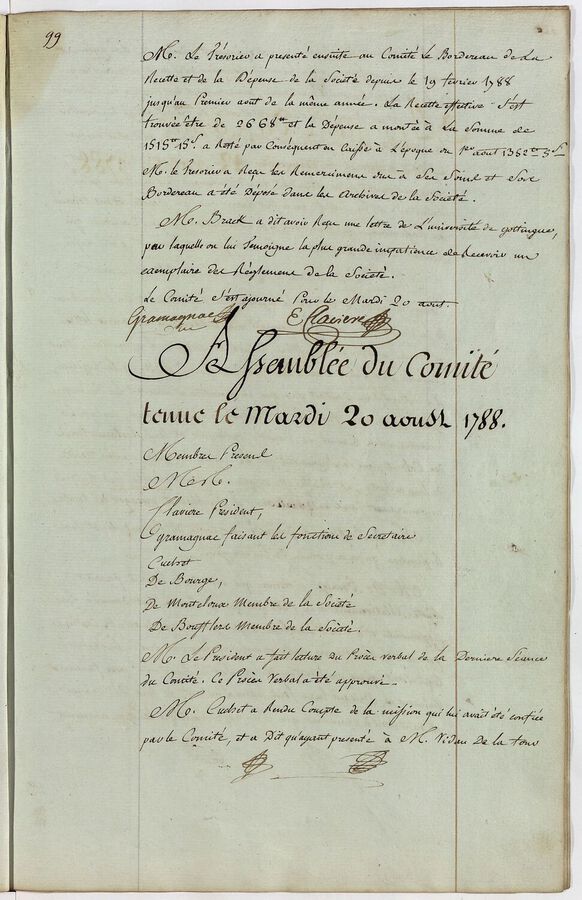 99
M. Le Trésorier a presenté ensuite au Comité le Bordereau de La
Recette et de la Dépense de la Société depuis le 19 fevrier 1788
jusqu'au Premier aout de la même année. La Recette effective s'est
trouvée être de 2668tt et la Dépense a montée à La Somme de
1515tt 15s. a Resté par Conséquent en Caisse à L'époque du 1er aout 1352tt 5s
M. le Tresorier a Reçu les Remerciments dus à Ses Soins et Son
Bordereau a été Déposé dans les Archives de la Société.
M. Brack a dit avoir Reçu une lettre de L'université de gottingue,
par laquelle on lui temoigne la plus grande impatience de Recevoir un
exemplaire des Réglemens de la Société.
Le Comité s'est ajourné Pour le Mardi 20 aout.
Gramagnac E Claviere
Assemblée du Comité
tenue le Mardi 20 aoust 1788.
Membres Presens
M.rs.
Claviere President,
gramagnac faisant les fonctions de Secretaire
Cuchet
De Bourge,
De Montcloux Membre de la Société
De Boufflers Membre de la Société.
M. Le President a fait lecture du Procès verbal de la Derniere Séance
du Comité. Ce Procès Verbal a été approuvé.
M. Cuchet a Rendu Compte de la mission qui lui avait été confiée
par le Comité, et a Dit qu'ayant presenté à M. Vidau De la tour